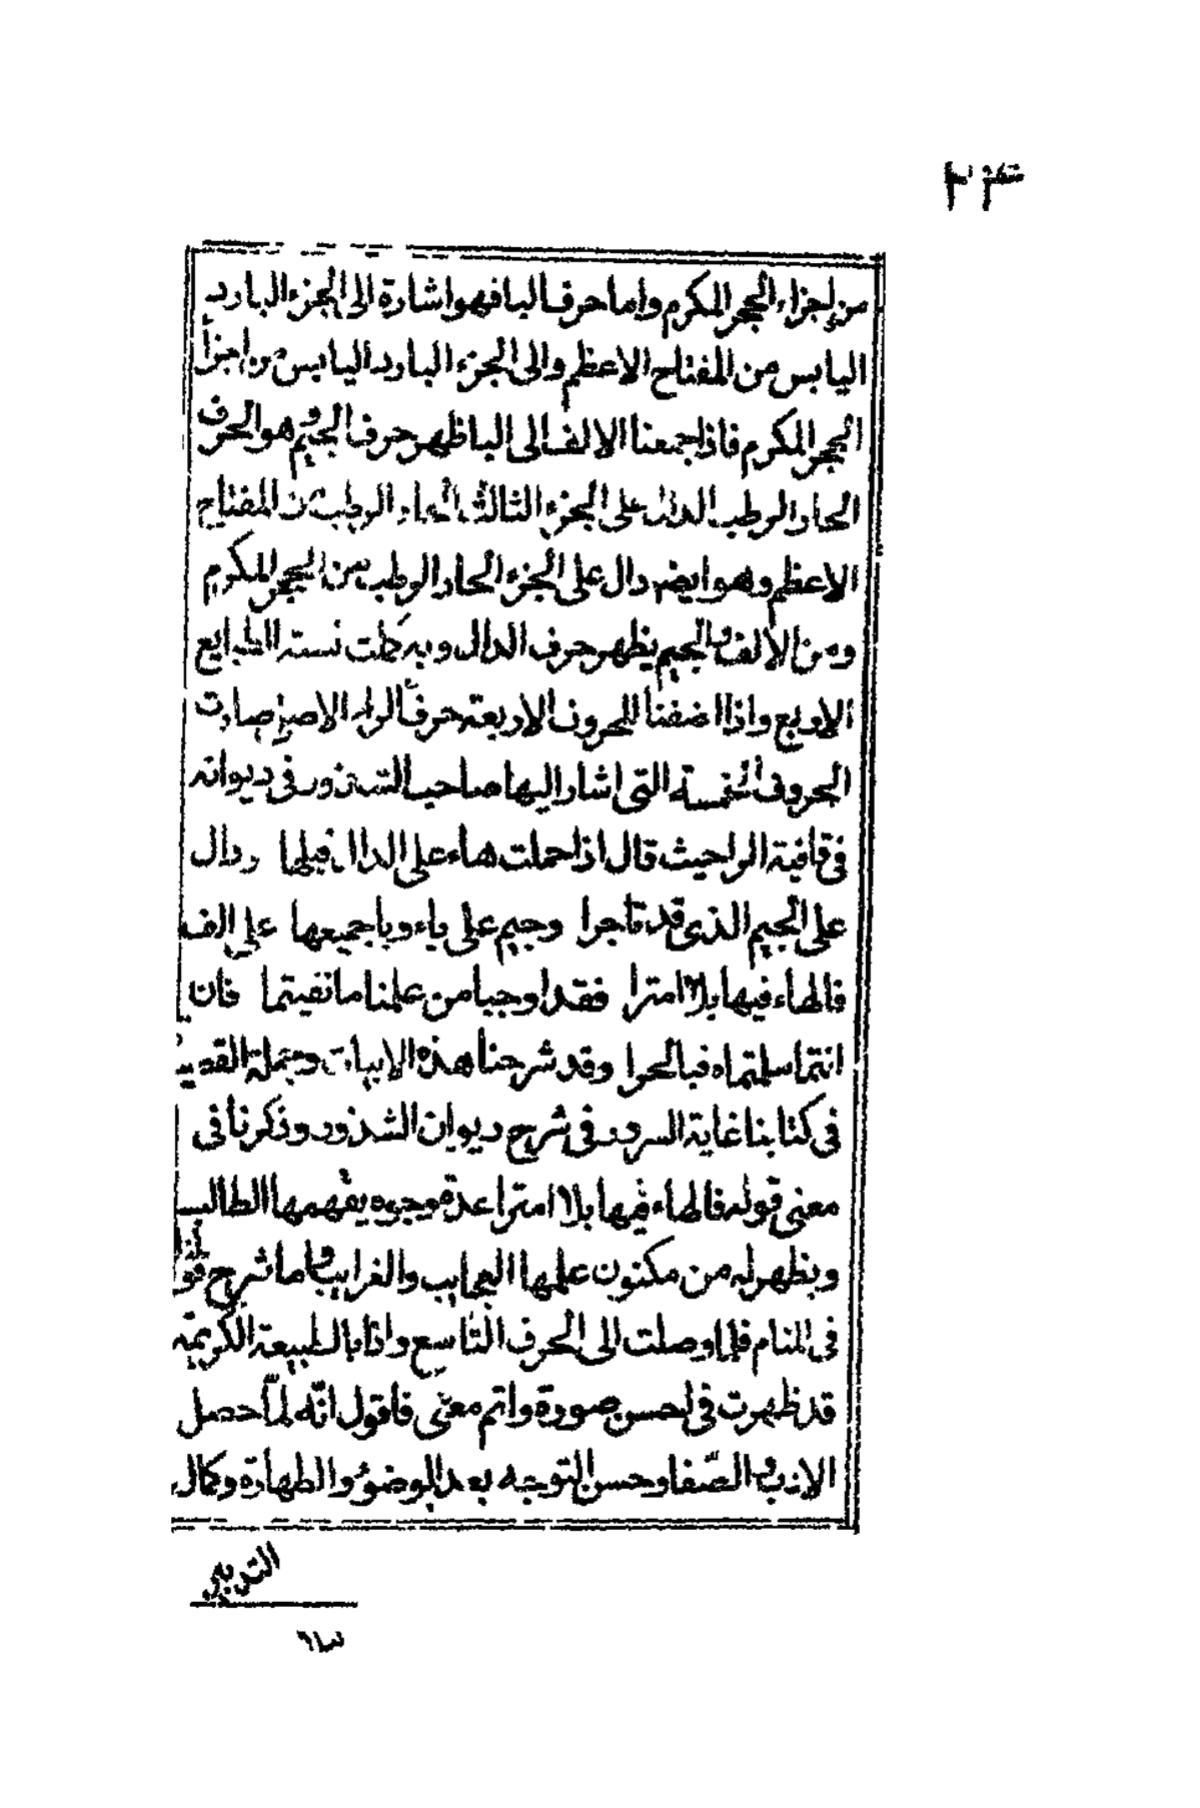 من اجزاء الحجر المكرم واما حرف البا فهو اشارة الى الجزء البارد
اليابس من المفتاح الاعظم والى الجزء البارد اليابس من اجزأ
الحجر المكرم فاذا جمعنا الالف الى البا ظهر حرف الجيم وهو الحرف
الحار الرطب الدال على الجزء الثالث الحار الرطب من المفتاح
الاعظم وهو ايضا دال على الجزء الحار الرطب من الحجر المكرم
ومن الالف والجيم يظهر حرف الدال وبه كملت نسبة الطبايع
الاربع واذا اضفنا للحروف الاربعة حرف الراء الاصم صارت
الحروف الخمسة التى اشار اليها صاحب الشذور فى ديوانه
فى قافية الرا حيث قال اذا حملت هاء على الدال قبلها ودال
على الجيم الذى قد تأجرا وجيم على باء وبا جميعها على الف
فالهاء فيها بلا امترا فقد اوجبا من علمنا ما نفيتما فان
انتما سلمتماه فبالحرا وقد شرحنا هذه الابيات وجملة القصيد
فى كتابنا غاية السرور فى شرح ديوان الشذور وذكرنا فى
معنى قوله فالهاء فيها بلا امترا عدة وجوه يفهمها الطالب
ويظهر له من مكنون علمها العجايب والغرايب واما شرح قولنا
فى المنام فلما وصلت الى الحرف التاسع واذا بالطبيعة الكريمة
قد ظهرت فى احسن صورة واتم معنى فاقول انّه لمّا حصل
الادب والصّفا وحسن التوجه بعد الوضؤ والطهارة وكمال
التدبير